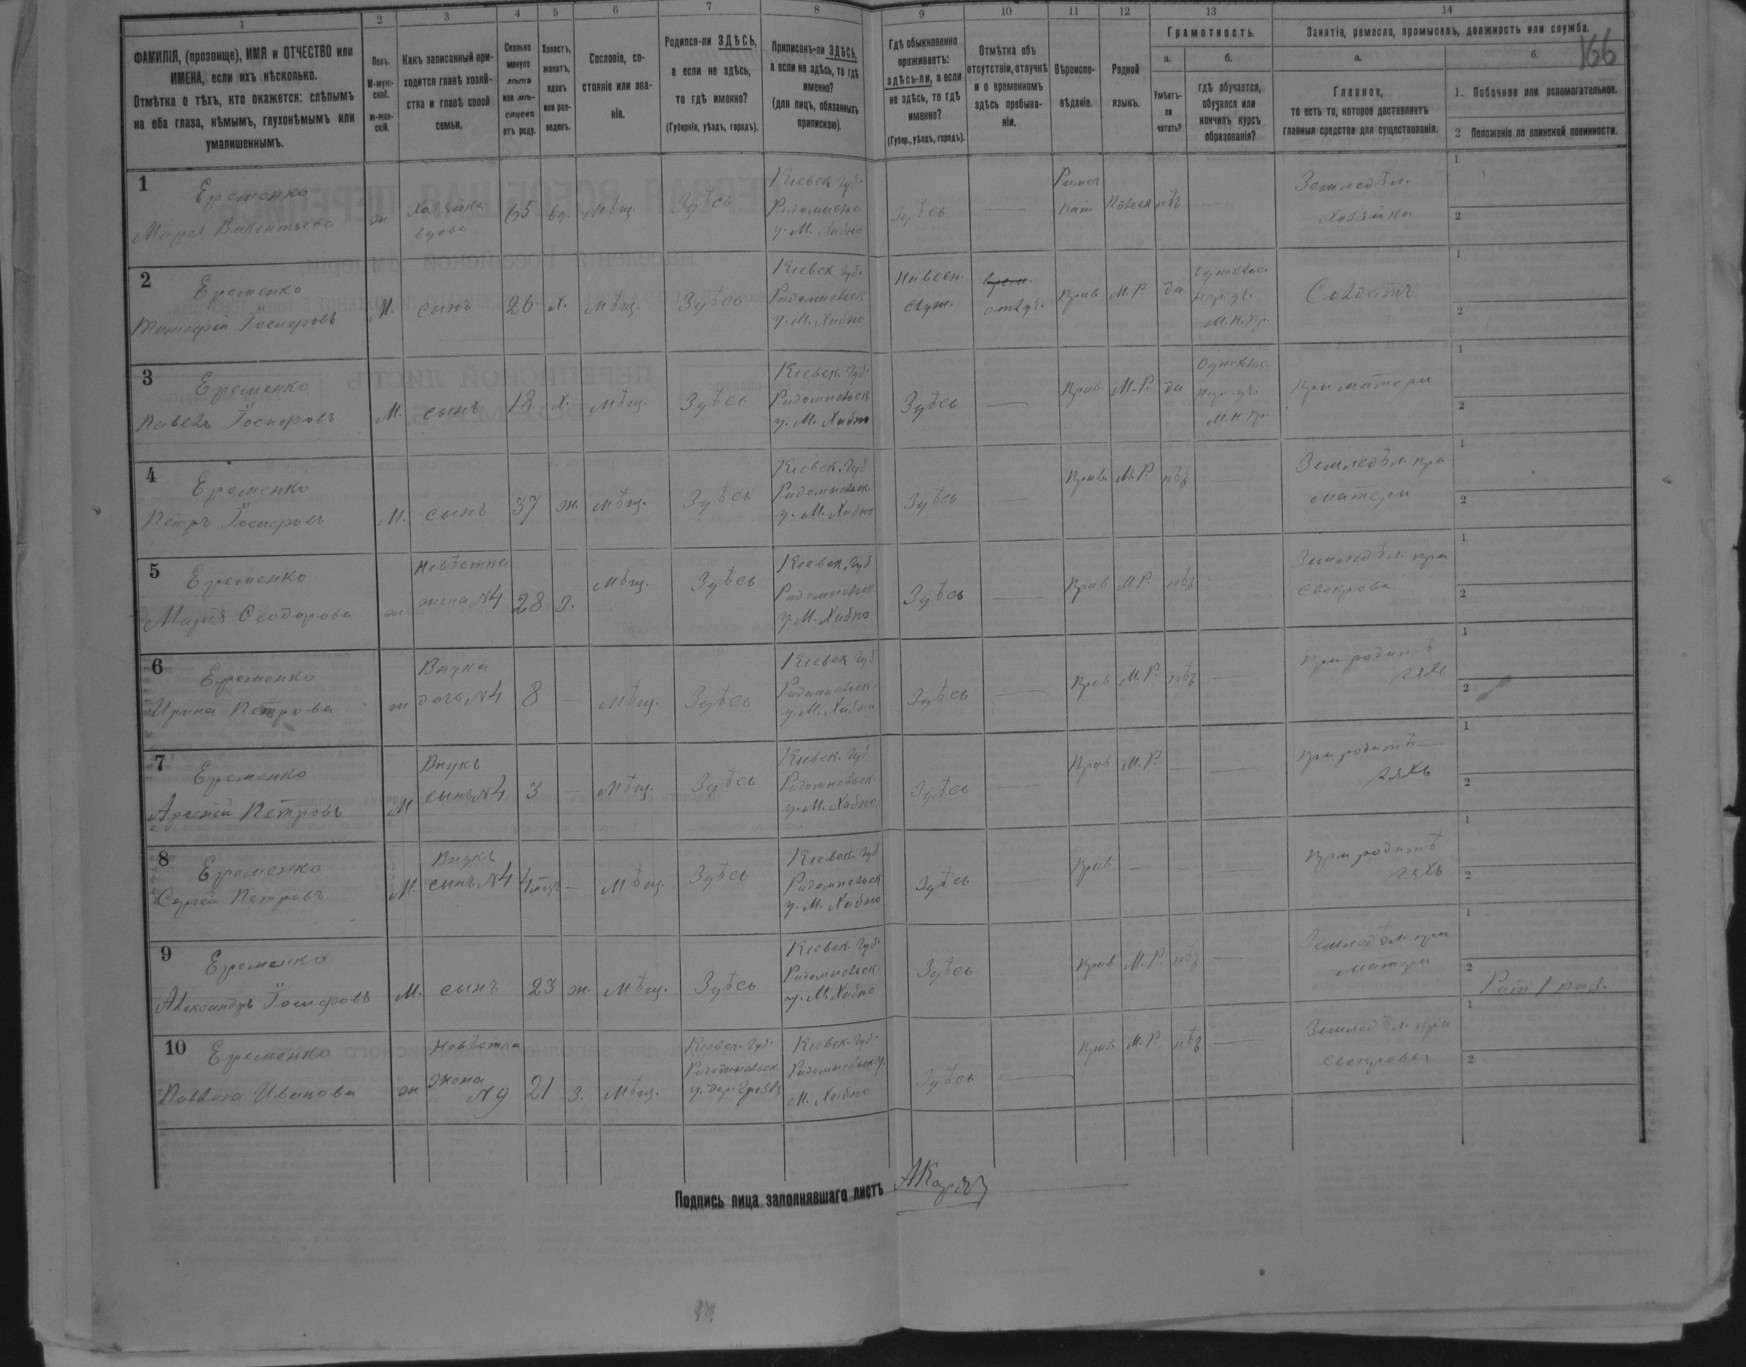 1 2 3 4 5 6 7 8 9 10 11 12 13 14
166
ФАМИЛІЯ, (прозвище), ИМЯ и ОТЧЕСТВО или
ИМЕНА, если ихъ нѣсколько.
Отмѣтка о тѣхъ, кто окажется: слѣпымъ
на оба глаза, нѣмымъ, глухонѣмымъ или
умалишеннымъ.
Полъ.
М-муж-
ской.
ж-жен-
скій.
Какъ записанный при-
ходится главѣ хозяй-
ства и главѣ своей
семьи.
Сколько
минуло
лѣтъ
или мѣс-
сяцевъ
отъ роду.
Холостъ,
женатъ,
вдовъ
или раз-
веденъ.
Сословіе, со-
стояніе или зва-
ніе.
Родился-ли ЗДѢСЬ,
а если не здѣсь,
то гдѣ именно?
(Губернія, уѣздъ, городъ).
Приписанъ-ли ЗДѢСЬ,
а если не здѣсь, то гдѣ
именно?
(для лицъ, обязанныхъ
припискою).
Гдѣ обыкновенно
проживаетъ:
здѣсь-ли, а если
не здѣсь, то гдѣ
именно?
(Губер., уѣздъ, городъ).
Отмѣтка объ
отсутствіи, отлучкѣ
и о временномъ
здѣсь пребыва-
ніи.
Вѣроиспо-
вѣданіе.
Родной
языкъ.
Грамотность.
а.
Умѣетъ-
ли
читать?
б.
гдѣ обучается,
обучался или
кончилъ курсъ
образованія?
Занятіе, ремесло, промыселъ, должность или служба.
а.
Главное,
то есть то, которое доставляетъ
главныя средства для существованія.
б.
1. Побочное или вспомогательное.
2 Положеніе по воинской повинности.
1 Еременко
Марія Викентьева
ж
Хозяйка
вдова
65
вд.
Мѣщ.
Здѣсь
Кіевск. губ.
Радомысльск
у. М. Хабно
Здѣсь
Римск
Кат
Польск
нѣт
Земледѣл.
хозяйка
1
2
2 Еременко
Іосифовъ
М.
сынъ
26
х.
Мѣщ.
Здѣсь
Кіевск губ.
Радомысльск
у. М. Хабно
отлуч.
Прав
М. Р.
да
М. Н. Пр.
Солдатъ
1
2
3 Еременко
Павелъ Іосифовъ
М.
сынъ
18
х.
Мѣщ.
Здѣсь
Кіевск. губ.
Радомысльск
у. М. Хабно
Здѣсь
Прав.
М. Р.
да
М. Н. Пр.
При матери
1
2
4 Еременко
Петръ Іосифовъ
М.
сынъ
37
ж.
Мѣщ.
Здѣсь
Кіевск. губ
Радомысльск
у. М. Хабно
Здѣсь
Прав.
М. Р.
нѣт
Земледѣл. при
матери
1
2
5 Еременко
Марія Ѳеодорова
ж
Невѣстка
жена №4
28
з.
Мѣщ.
Здѣсь
Кіевск. губ
Радомысльск
у. М. Хабно
Здѣсь
Прав
М. Р.
нѣт
Земледѣл. при
свекрова
1
2
6 Еременко
Ирина Петрова
ж
Внука
дочь №4
8
—
Мѣщ.
Здѣсь
Кіевск губ
Радомысльск.
у. М. Хабно
Здѣсь
Прав
М. Р.
нѣт
При родитѣ
ляхъ
1
2
7 Еременко
Арсеній Петровъ
М
Внукъ
сынъ №4
3
—
Мѣщ.
Здѣсь
Кіевск. губ.
Радомысльск.
у. М. Хабно
Здѣсь
Прав
М. Р.
При родитѣ
ляхъ
1
2
8 Еременко
Сергѣй Петровъ
М.
Внукъ
сынъ №4
—
Мѣщ.
Здѣсь
Кіевск. губ
Радомысльск
у. М. Хабно
Здѣсь
Прав
При родитѣ
ляхъ
1
2
9 Еременко
Александръ Іосифовъ
М.
сынъ
23
ж.
Мѣщ.
Здѣсь
Кіевск. губ.
Радомысльск.
у. М. Хабно
Здѣсь
Прав
М. Р.
нѣт
Земледѣл при
матери
1
2 Рат 1 раз.
10 Еременко
Ивановна
ж
Невѣстка
жена
№9
21
з.
Мѣщ.
Кіевск. губ.
Радомысльск.
Кіевск. губ.
Радомысльск у.
М. Хабно
Здѣсь
Прав
М. Р.
нѣт
Земледѣл. при
1
2
Подпись лица заполнявшаго листъ